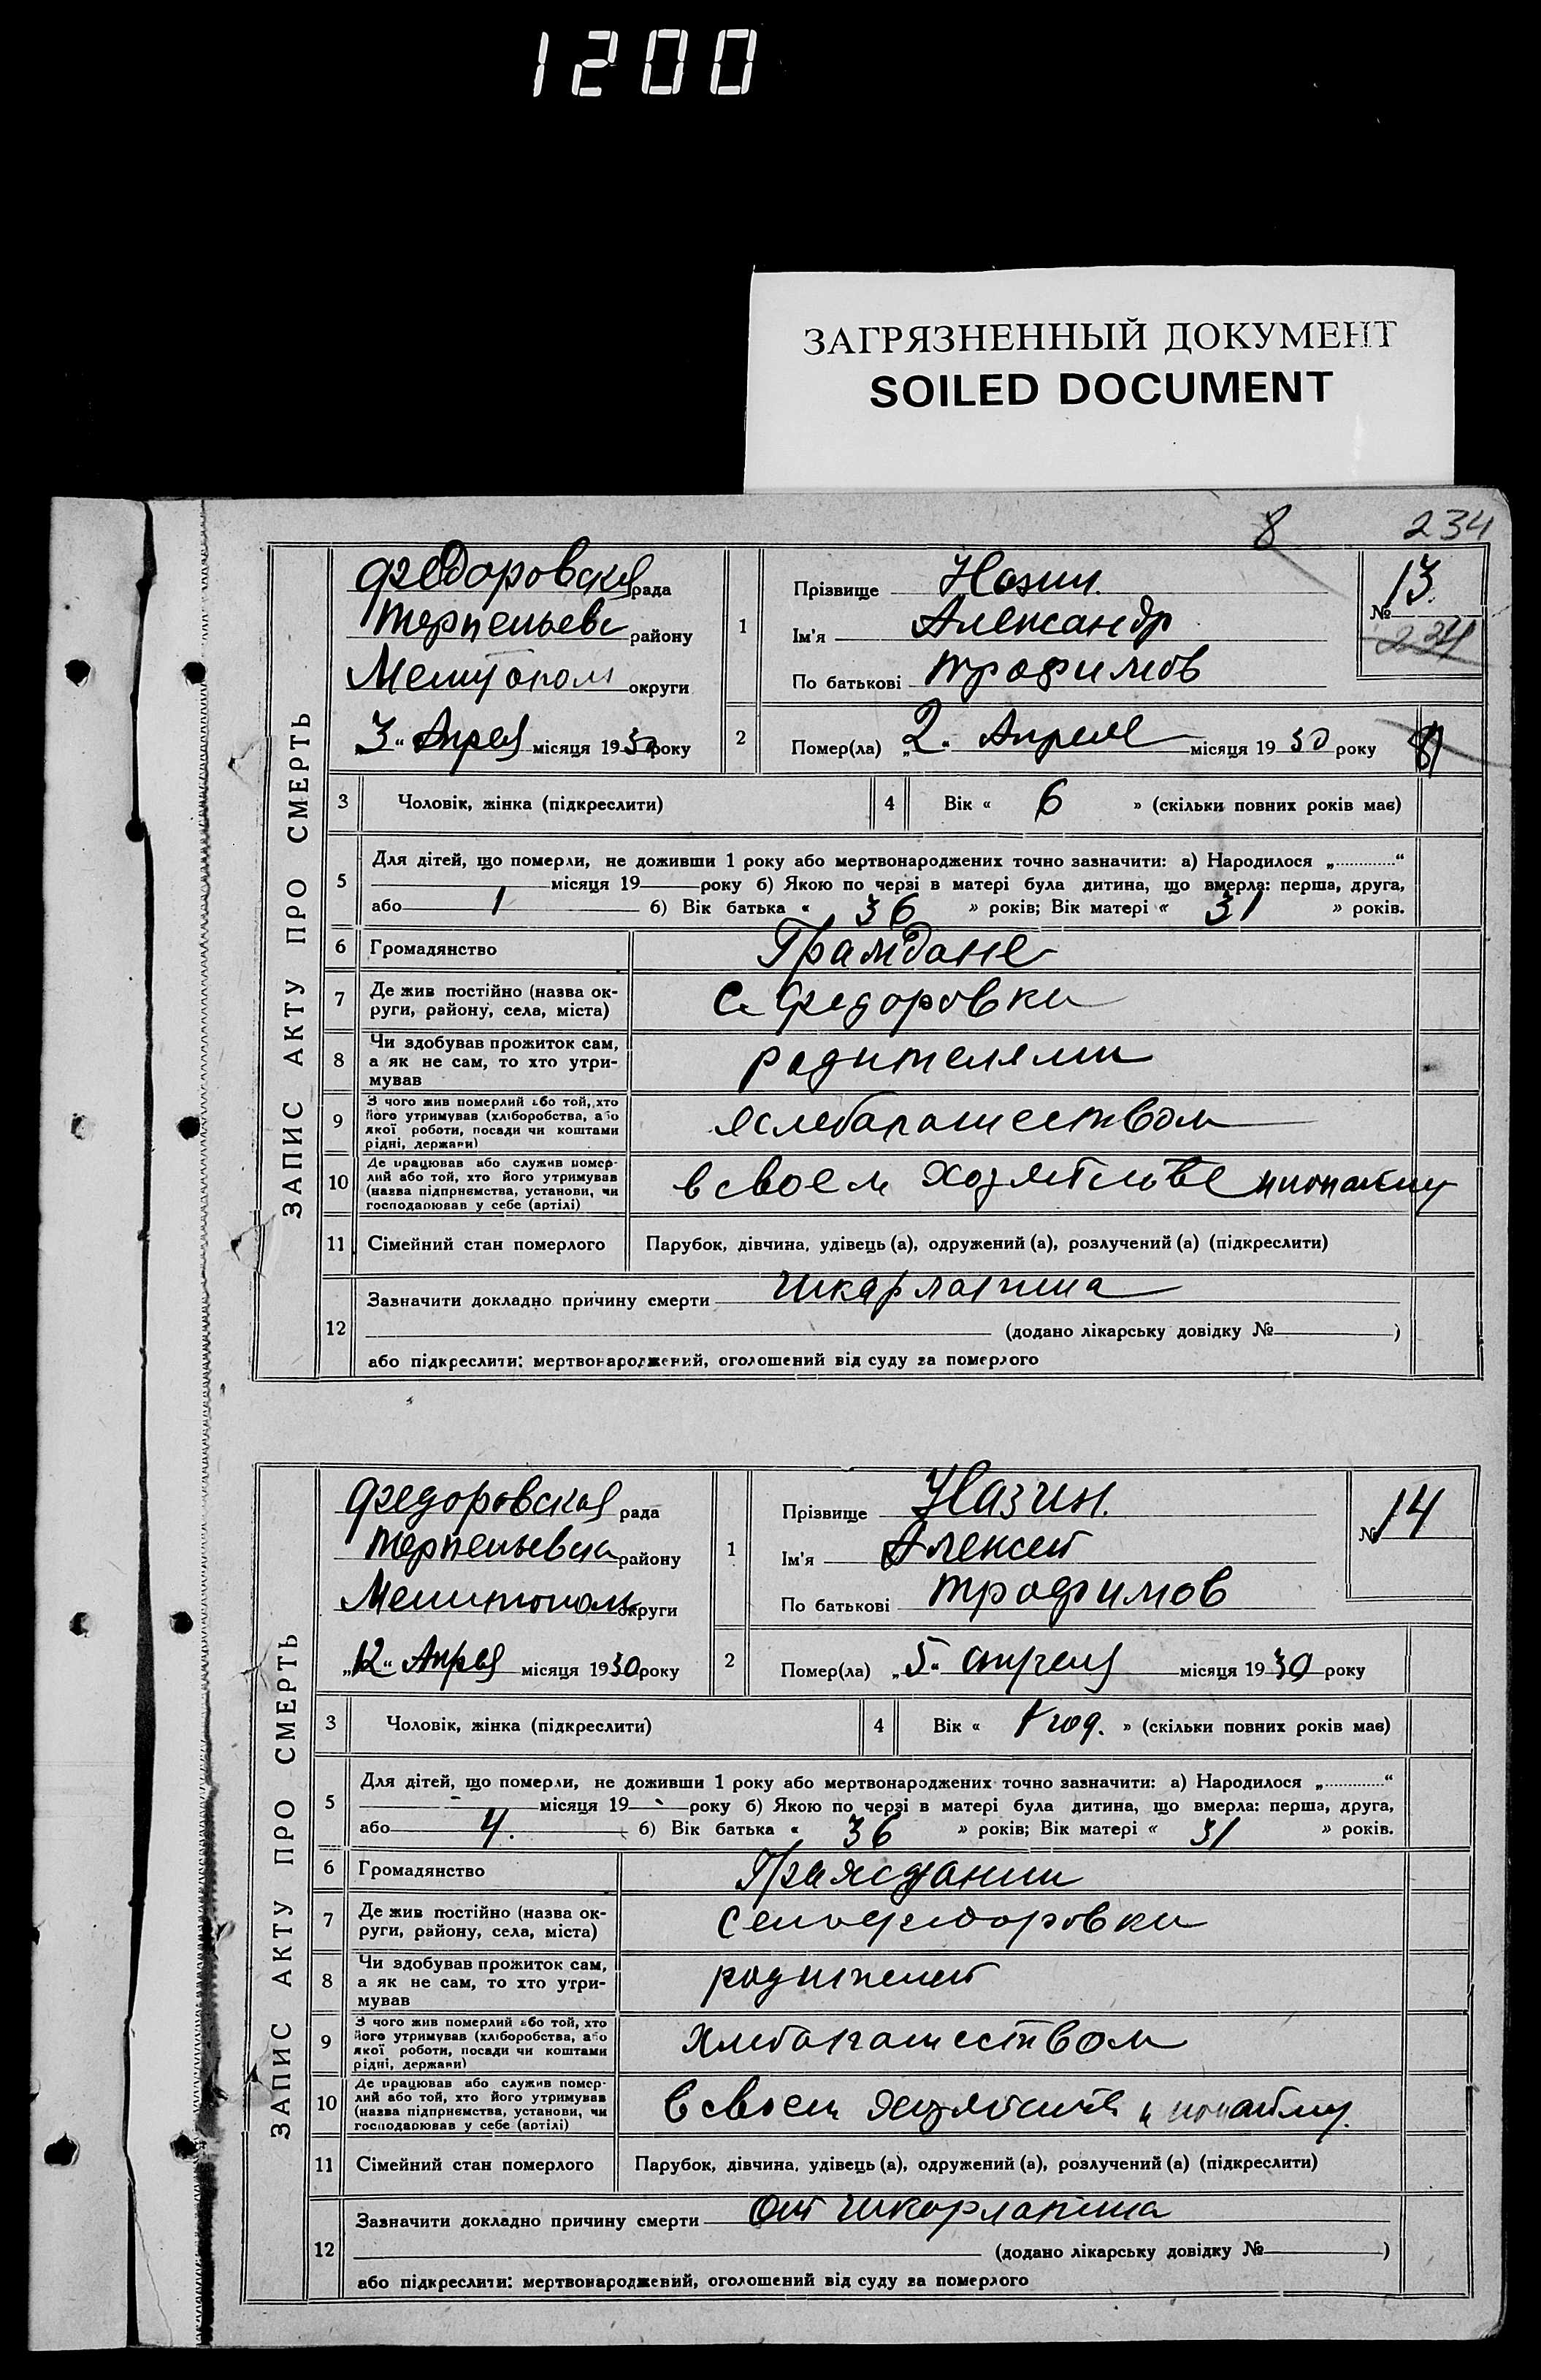 1200
ЗАГРЯЗНЕННЫЙ ДОКУМЕНТ
SOILED DOCUMENT
8 234
ЗАПИС АКТУ ПРО СМЕРТЬ
Федоровская рада
Терпеньевс району
Мелитополь округи
„3“ Апреля місяця 1930 року
1
Прізвище Назин.
Ім'я Александр
По батькові Трофимов
№ 13.
234
2 Помер(ла) „2“ Апреля місяця 1930 року
3 Чоловік, жінка (підкреслити)
4 Вік « 6 » (скільки повних років має)
5 Для дітей, що померли, не доживши 1 року або мертвонароджених точно зазначити: а) Народилося „............“
місяця 19 року б) Якою по черзі в матері була дитина, що вмерла: перша, друга,
або 1 б) Вік батька « 36 » років; Вік матері « 31 » років.
6 Громадянство Граждане
7 Де жив постійно (назва ок-
руги, району, села, міста)
С Федоровки
8 Чи здобував прожиток сам,
а як не сам, то хто утри-
мував
родителями
9 З чого жив померлий або той, хто
його утримував (хліборобства, або
якої роботи, посади чи коштами
рідні, держави)
хлебопашеством
10 Де працював або служив помер-
лий або той, хто його утримував
(назва підприємства, установи, чи
господарював у себе (артілі)
в своем хозяйстве
11 Сімейний стан померлого Парубок, дівчина, удівець (а), одружений (а), розлучений (а) (підкреслити)
12 Зазначити докладно причину смерти шкарлатина
(додано лікарську довідку № )
або підкреслити: мертвонароджений, оголошений від суду за померлого
ЗАПИС АКТУ ПРО СМЕРТЬ
Федоровская рада
Терпеньевска району
Мелитополь округи
„12“ Апреля місяця 1930 року
1
Прізвище Назин.
Ім'я Алексей
По батькові Трофимов
№ 14
2 Помер(ла) „5“ апреля місяця 1930 року
3 Чоловік, жінка (підкреслити)
4 Вік « 1 год. » (скільки повних років має)
5 Для дітей, що померли, не доживши 1 року або мертвонароджених точно зазначити: а) Народилося „............“
місяця 19 року б) Якою по черзі в матері була дитина, що вмерла: перша, друга,
або 4. б) Вік батька « 36 » років; Вік матері « 31 » років.
6 Громадянство Гражданин
7 Де жив постійно (назва ок-
руги, району, села, міста)
Село Федоровки
8 Чи здобував прожиток сам,
а як не сам, то хто утри-
мував
родителей
9 З чого жив померлий або той, хто
його утримував (хліборобства, або
якої роботи, посади чи коштами
рідні, держави)
хлебопашеством
10 Де працював або служив помер-
лий або той, хто його утримував
(назва підприємства, установи, чи
господарював у себе (артілі)
в своем хозяйстве и по найму.
11 Сімейний стан померлого Парубок, дівчина, удівець (а), одружений (а), розлучений (а) (підкреслити)
12 Зазначити докладно причину смерти от шкорлатина
(додано лікарську довідку № )
або підкреслити: мертвонароджений, оголошений від суду за померлого